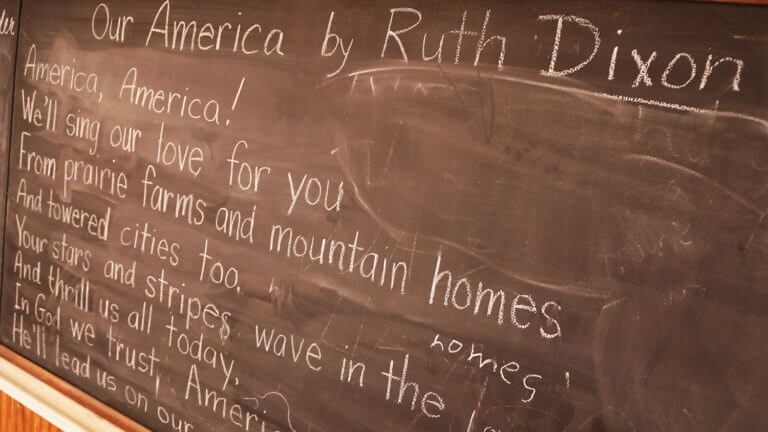 Our America by Ruth Dixon
America, America!
We'll sing our love for you
From prairie farms and mountain homes
And towered cities too.
homes
Your stars and stripes wave in the
And thrill us all today,
In God we trust, Ameri
He'll lead us on our